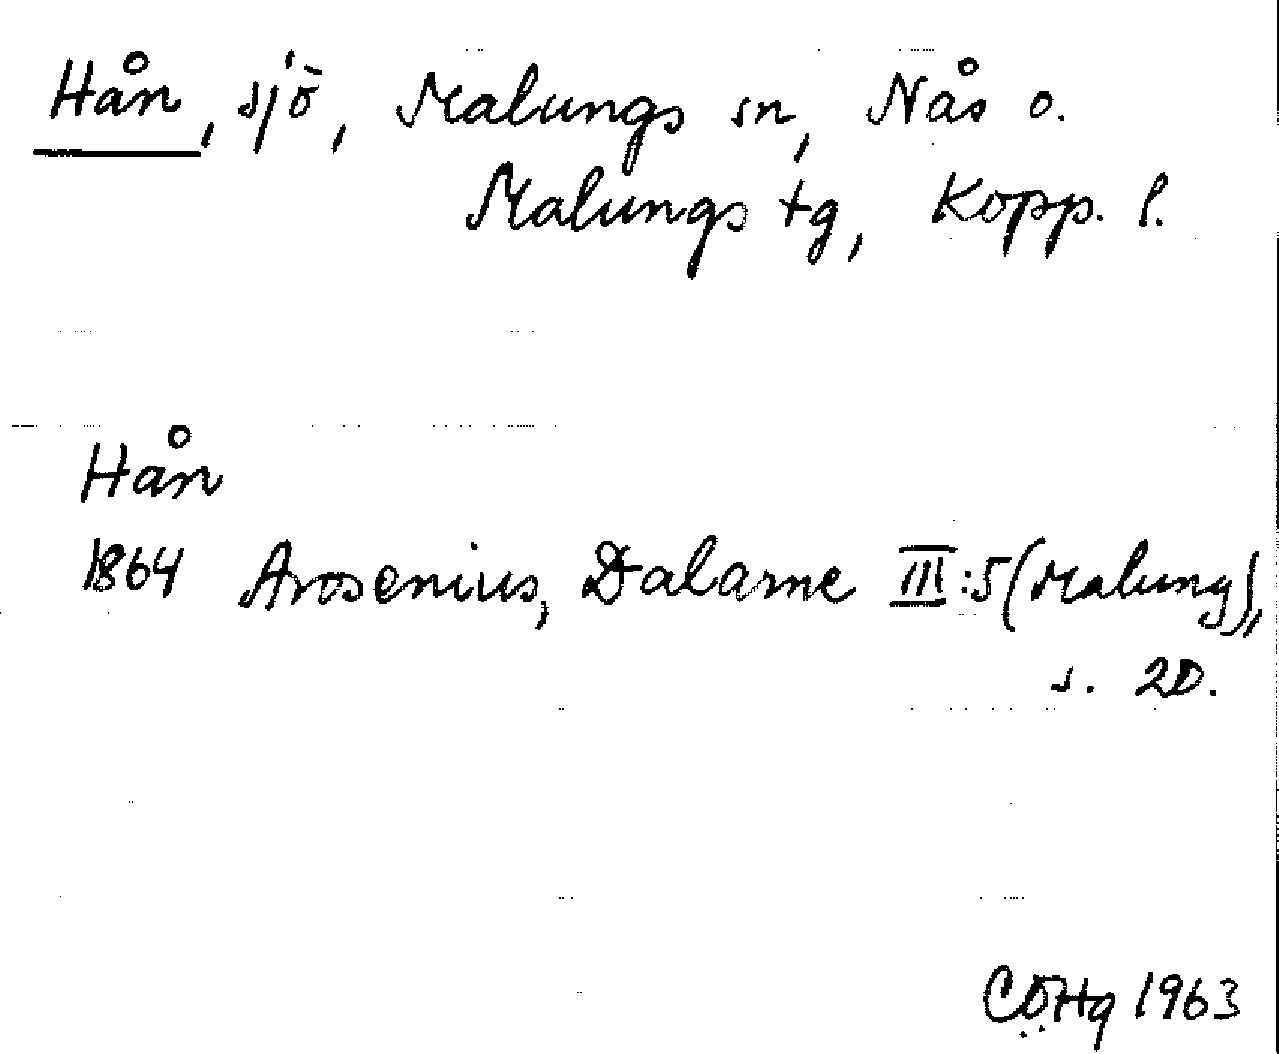 Hån, sjö, Malungs sn, Nås o.
Malungs tg, Kopp. l.
Hån
1864 Arosenius, Dalarne III:5 (Malung),
s. 20.
CÖHg 1963